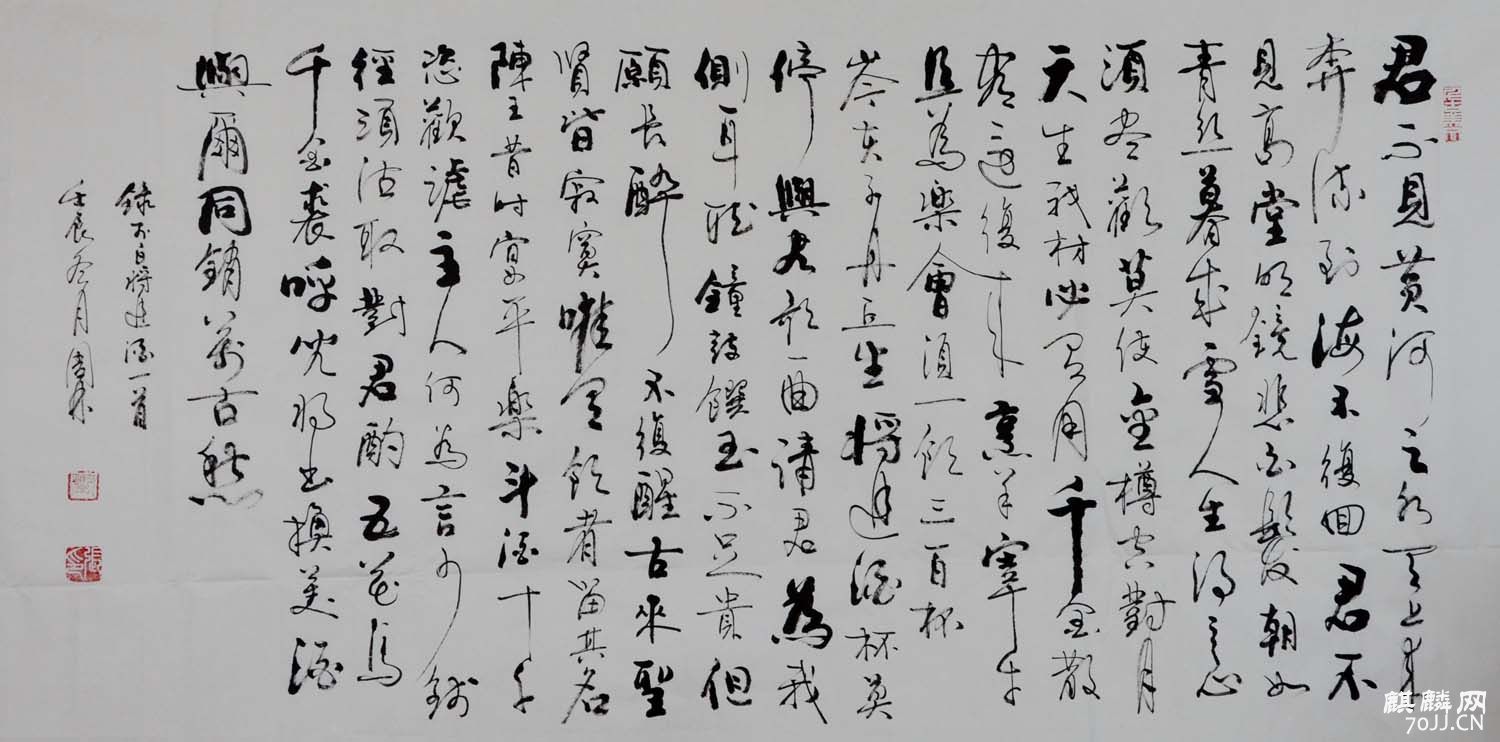 君不見黃河之水天上來
奔流到海不復回君不
見高堂明鏡悲白髮朝如
青絲暮成雪人生得意
須盡歡莫使金樽空對月
天生我材必有用千金散
盡還復來烹羊宰牛
且為樂會須一飲三百杯
岑夫子丹丘生將進酒杯莫
停與君歌一曲請君為我
側耳聽鐘鼓饌玉不足貴但
願長醉不復醒古來聖
賢皆寂寞唯有飲者留其名
陳王昔時宴平樂斗酒十千
恣歡謔主人何為言少錢
徑須沽取對君酌五花馬
千金裘呼兒將出換美酒
與爾同銷萬古愁
錄李白將進酒一首
壬辰冬月
麒麟网
70JJ.CN